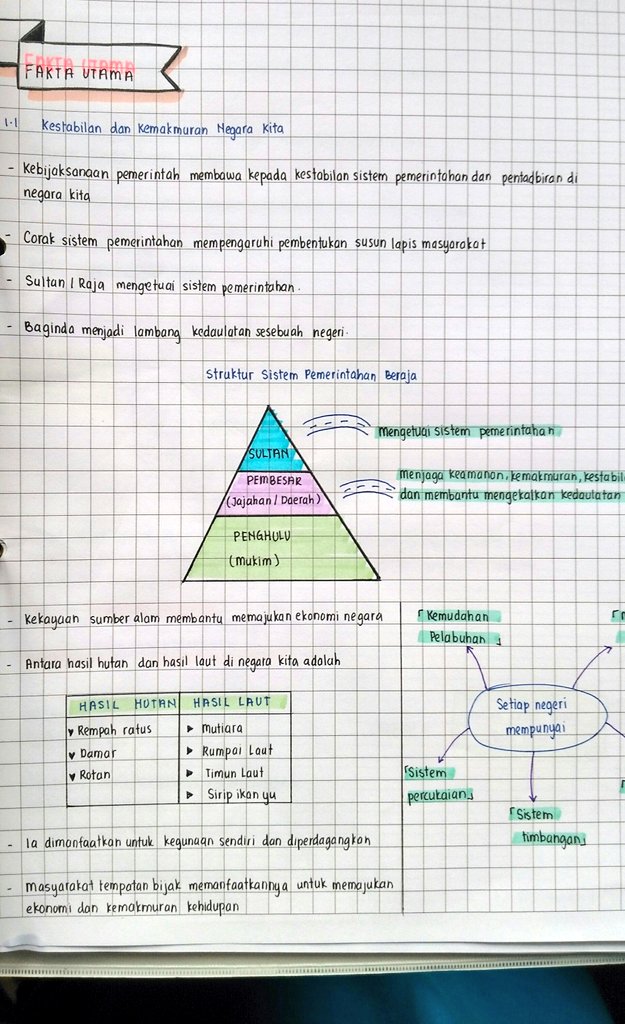 FAKTA UTAMA
1.1 Kestabilan dan Kemakmuran Negara Kita
- Kebijaksanaan pemerintah membawa kepada kestabilan sistem pemerintahan dan pentadbiran di
negara kita
- Corak sistem pemerintahan mempengaruhi pembentukan susun lapis masyarakat
- Sultan / Raja mengetuai sistem pemerintahan.
- Baginda menjadi lambang kedaulatan sesebuah negeri.
Struktur Sistem Pemerintahan Beraja
SULTAN
mengetuai sistem pemerintahan
PEMBESAR
(Jajahan / Daerah)
menjaga keamanan, kemakmuran, kestabil
dan membantu mengekalkan kedaulatan
PENGHULU
(mukim)
- Kekayaan sumber alam membantu memajukan ekonomi negara
- Antara hasil hutan dan hasil laut di negara kita adalah
HASIL HUTAN
♥ Rempah ratus
♥ Damar
♥ Rotan
HASIL LAUT
▶ mutiara
▶ Rumpai Laut
▶ Timun Laut
▶ Sirip ikan yu
- Ia dimanfaatkan untuk kegunaan sendiri dan diperdagangkan
- masyarakat tempatan bijak memanfaatkannya untuk memajukan
ekonomi dan kemakmuran kehidupan
「Kemudahan
Pelabuhan」
Setiap negeri
mempunyai
「Sistem
percukaian」
「Sistem
timbangan」